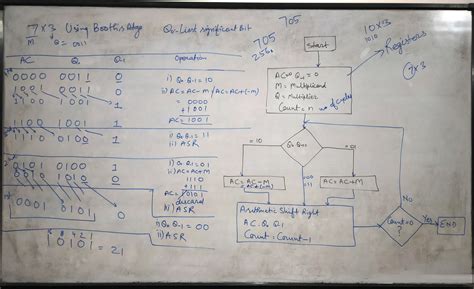 7×3 Using Booth's Algo
Q0-Least significant Bit
M Q= 0011
AC Q Q-1 Operation
0000 0011 0
i) Q0 Q-1 = 10
1001 0011 0
ii) AC=AC-M / AC=AC+(-M)
= 0000
+ 1001
1100 1001 1
AC= 1001
1100 1001 1
i) Q0 Q-1 = 11
1110 0100 1
ii) ASR
0101 0100 1
i) Q0 Q-1 = 01
ii) AC=AC+M
0010 1010 0
1110
+ 111
AC= 10101
discard
iii) ASR
0001 0101 0
i) Q0 Q-1 = 00
ii) ASR
8 4 2 1
10101 = 21
705
705
256
10×3
1010
Registers
7×3
Start
AC=0 Q-1 = 0
M = Multiplicand
Q = Multiplier
Count = n no. of cycles
Q0 Q-1
= 10
= 01
00
11
AC=AC-M
AC=AC+(-M)
AC=AC+M
Arithmetic Shift Right
AC Q Q-1
Count = Count-1
No
Count=0
?
Yes
END